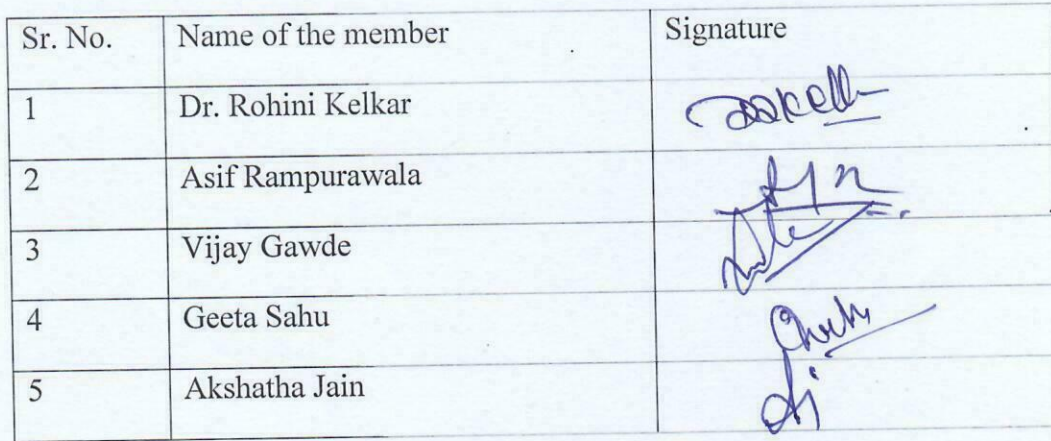 Sr. No. Name of the member Signature
1 Dr. Rohini Kelkar
2 Asif Rampurawala
3 Vijay Gawde
4 Geeta Sahu
5 Akshatha Jain